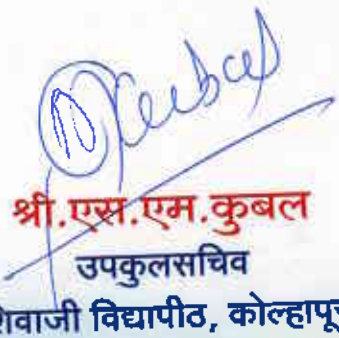 श्री.एस.एम.कुबल
उपकुलसचिव
शिवाजी विद्यापीठ, कोल्हापूर